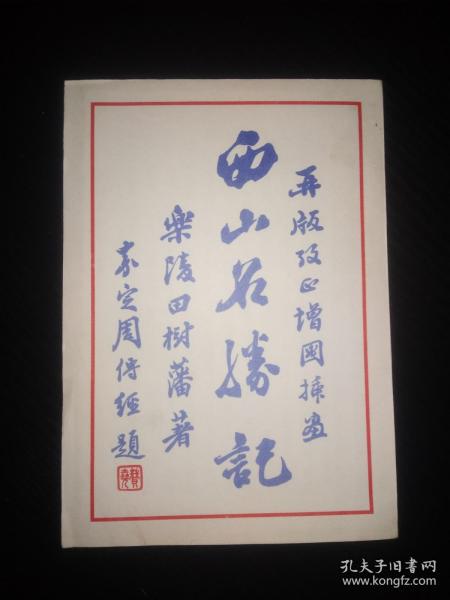 再版改正增图插画
西山名勝記
樂陵田樹藩著
嘉定周傳經題
孔夫子旧书网
www.kongfz.com